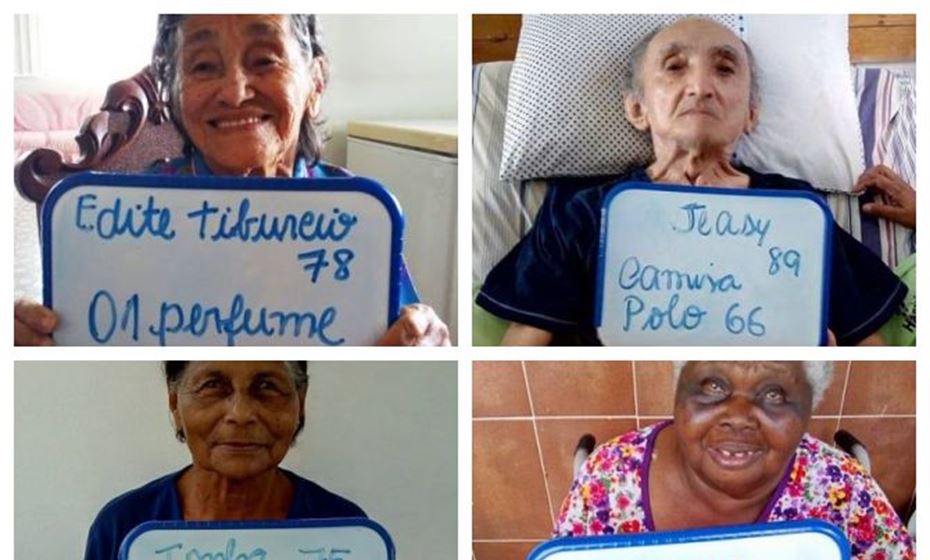 Edite Tiburcio
78
01 perfume
Jeasy
89
Camisa
Polo 66
75